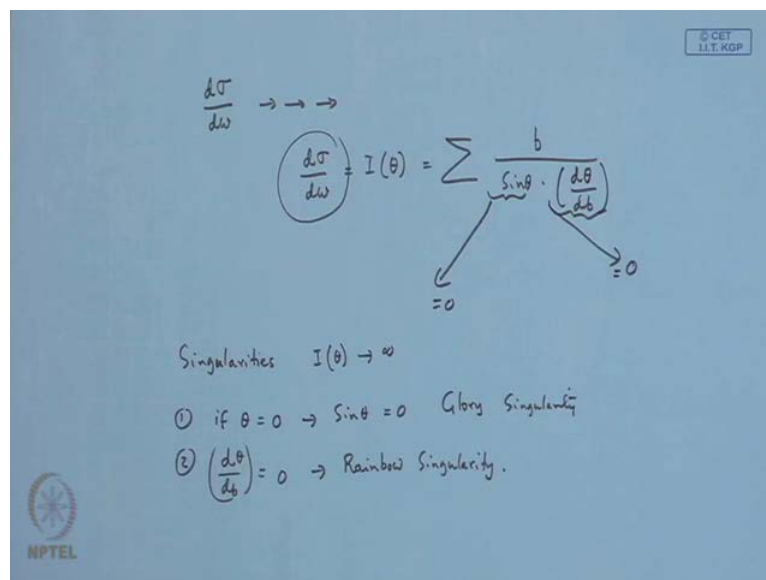 © CET
I.I.T. KGP
dσ/dω → → →
dσ/dω = I(θ) = Σ b / (Sinθ · (dθ/db))
=0
=0
Singularities I(θ) → ∞
① if θ = 0 → Sinθ = 0 Glory Singularity
② (dθ/db) = 0 → Rainbow Singularity.
NPTEL